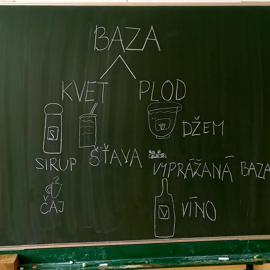 BAZA
KVET PLOD
DŽEM
SIRUP ŠŤAVA VYPRÁŽANÁ BAZA
ČAJ
VÍNO
V